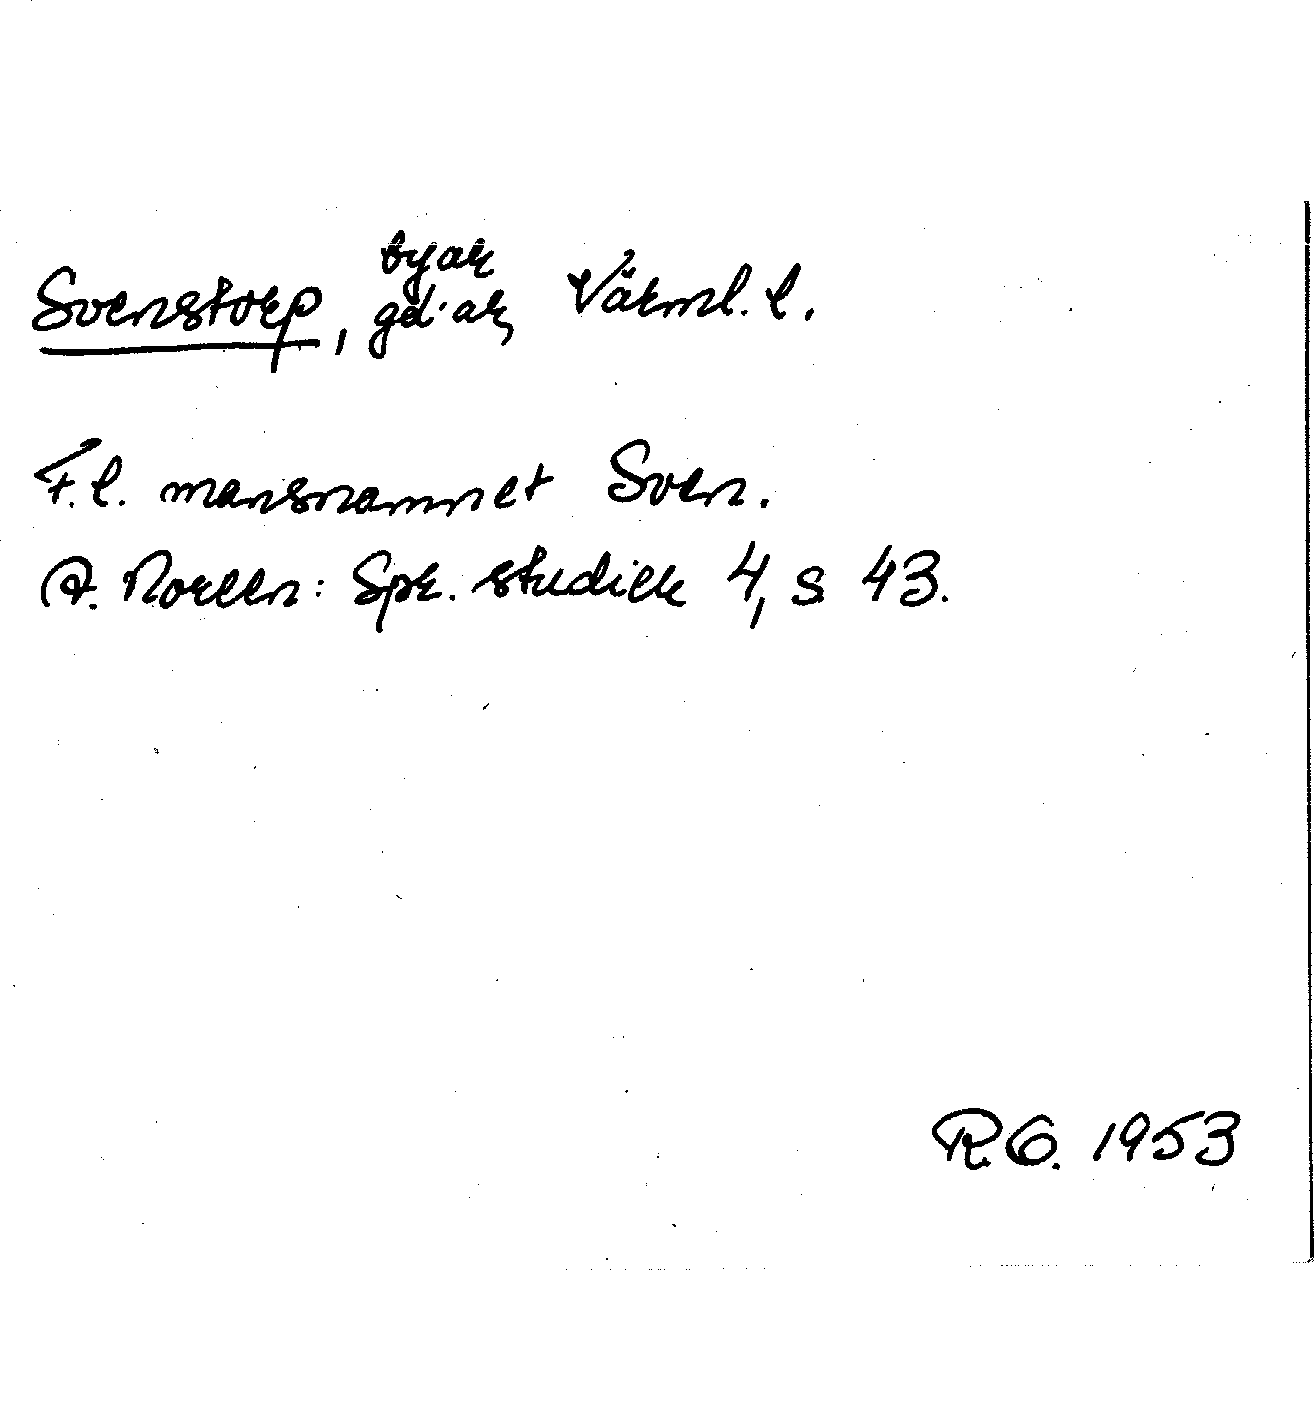 byar
Svenstorp, gd·ar, Värml. l.
F.l. mansnamnet Sven.
A. Noreen: Spr. studier 4, s 43.
RG. 1953